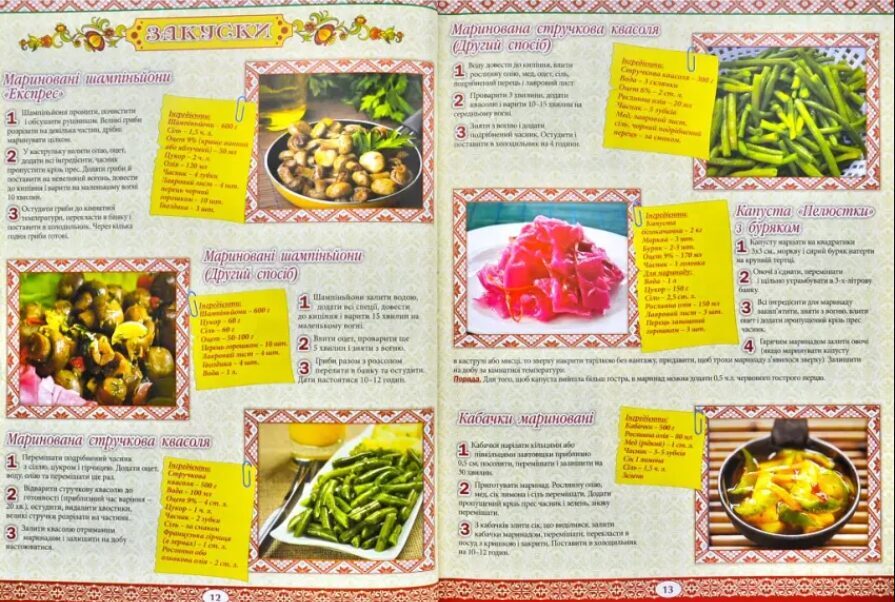 ЗАКУСКИ
Мариновані шампіньйони
«Експрес»
1 Шампіньйони промити, почистити
і обсушити рушником. Великі гриби
розрізати на декілька частин, дрібні
маринувати цілком.
2 У каструльку налити олію, оцет,
додати всі інгредієнти, часник
пропустити крізь прес. Додати гриби й
поставити на невеликий вогонь, довести
до кипіння і варити на маленькому вогні
10 хвилин.
3 Остудити гриби до кімнатної
температури, перекласти в банку і
поставити в холодильник. Через кілька
годин гриби готові.
Інгредієнти:
Шампіньйони – 600 г
Сіль – 1,5 ч. л.
Оцет 9% (краще винний
або яблучний) – 50 мл
Цукор – 2 ч. л.
Олія – 120 мл
Часник – 4 зубки
Лавровий лист – 4 шт.
перець чорний
горошком – 10 шт.
Гвоздика – 3 шт.
Мариновані шампіньйони
(Другий спосіб)
Інгредієнти:
Шампіньйони – 600 г
Цукор – 60 г
Сіль – 60 г
Оцет – 50-100 г
Перець-горошком – 10 шт.
Лавровий лист – 4 шт.
Гвоздика – 4 шт.
Вода – 1 л.
1 Шампіньйони залити водою,
додати всі спеції, довести
до кипіння і варити 15 хвилин на
маленькому вогні.
2 Влити оцет, проварити ще
5 хвилин і зняти з вогню.
3 Гриби разом з розсолом
перелити в банку та остудити.
Дати настоятися 10–12 годин.
Маринована стручкова квасоля
1 Перемішати подрібнений часник
з сіллю, цукром і гірчицею. Додати оцет,
воду, олію та перемішати ще раз.
2 Відварити стручкову квасолю до
готовності (приблизний час варіння –
20 хв.), остудити, видалити хвостики,
великі стручки розрізати на частини.
3 Залити квасолю отриманим
маринадом і залишити на добу
настоюватися.
Інгредієнти:
Стручкова
квасоля – 500 г
Вода – 100 мл
Оцет 9% – 4 ст. л.
Цукор – 1 ч. л.
Часник – 2 зубки
Сіль – за смаком
Французька гірчиця
(в зернах) – 1 ст. л.
Рослинна або
оливкова олія – 2 ст. л.
12
Маринована стручкова квасоля
(Другий спосіб)
1 Воду довести до кипіння, влити
рослинну олію, мед, оцет, сіль,
подрібнений перець і лавровий лист.
2 Проварити 3 хвилини, додати
квасолю і варити 10–15 хвилин на
середньому вогні.
3 Зняти з вогню і додати
подрібнений часник. Остудити і
поставити в холодильник на 4 години.
Інгредієнти:
Стручкова квасоля – 300 г
Вода – 3 склянки
Оцет 6% – 2 ст. л.
Рослинна олія – 20 мл
Часник – 5 зубків
Мед, лавровий лист,
сіль, чорний подрібнений
перець – за смаком.
Інгредієнти:
Капуста
білокачанна – 2 кг
Морква – 3 шт.
Буряк – 2-3 шт.
Оцет 9% – 170 мл
Часник – 1 головка
Для маринаду:
Вода – 1 л
Цукор – 150 г
Сіль – 2,5 ст. л.
Рослинна олія – 150 мл
Лавровий лист – 3 шт.
Перець запашний
горошком – 3 шт.
Капуста «Пелюстки»
з буряком
1 Капусту нарізати на квадратики
3x3 см., моркву і сирий буряк натерти
на крупній тертці.
2 Овочі з'єднати, перемішати
і щільно утрамбувати в 3-х-літрову
банку.
3 Всі інгредієнти для маринаду
закип'ятити, зняти з вогню, влити
оцет і додати пропущений крізь прес
часник.
4 Гарячим маринадом залити овочі
(якщо маринувати капусту
в каструлі або мисці, то зверху накрити тарілкою без вантажу, придавити, щоб трохи маринаду з'явилося зверху). Залишити
на добу за кімнатної температури.
Порада. Для того, щоб капуста вийшла більш гостра, в маринад можна додати 0,5 ч.л. червоного гострого перцю.
Кабачки мариновані
1 Кабачки нарізати кільцями або
півкільцями завтовшки приблизно
0,5 см, посолити, перемішати і залишити на
30 хвилин.
2 Приготувати маринад. Рослинну олію,
мед, сік лимона і сіль перемішати. Додати
пропущений крізь прес часник і зелень, знову
перемішати.
3 З кабачків злити сік, що виділився, залити
кабачки маринадом, перемішати, перекласти в
посуд з кришкою і закрити. Поставити в холодильник
на 10–12 годин.
Інгредієнти:
Кабачки – 500 г
Рослинна олія – 80 мл.
Мед (рідкий) – 1 ст. л.
Часник – 3-5 зубків
Сік 1 лимона
Сіль – 1,5 ч. л.
Зелень
13